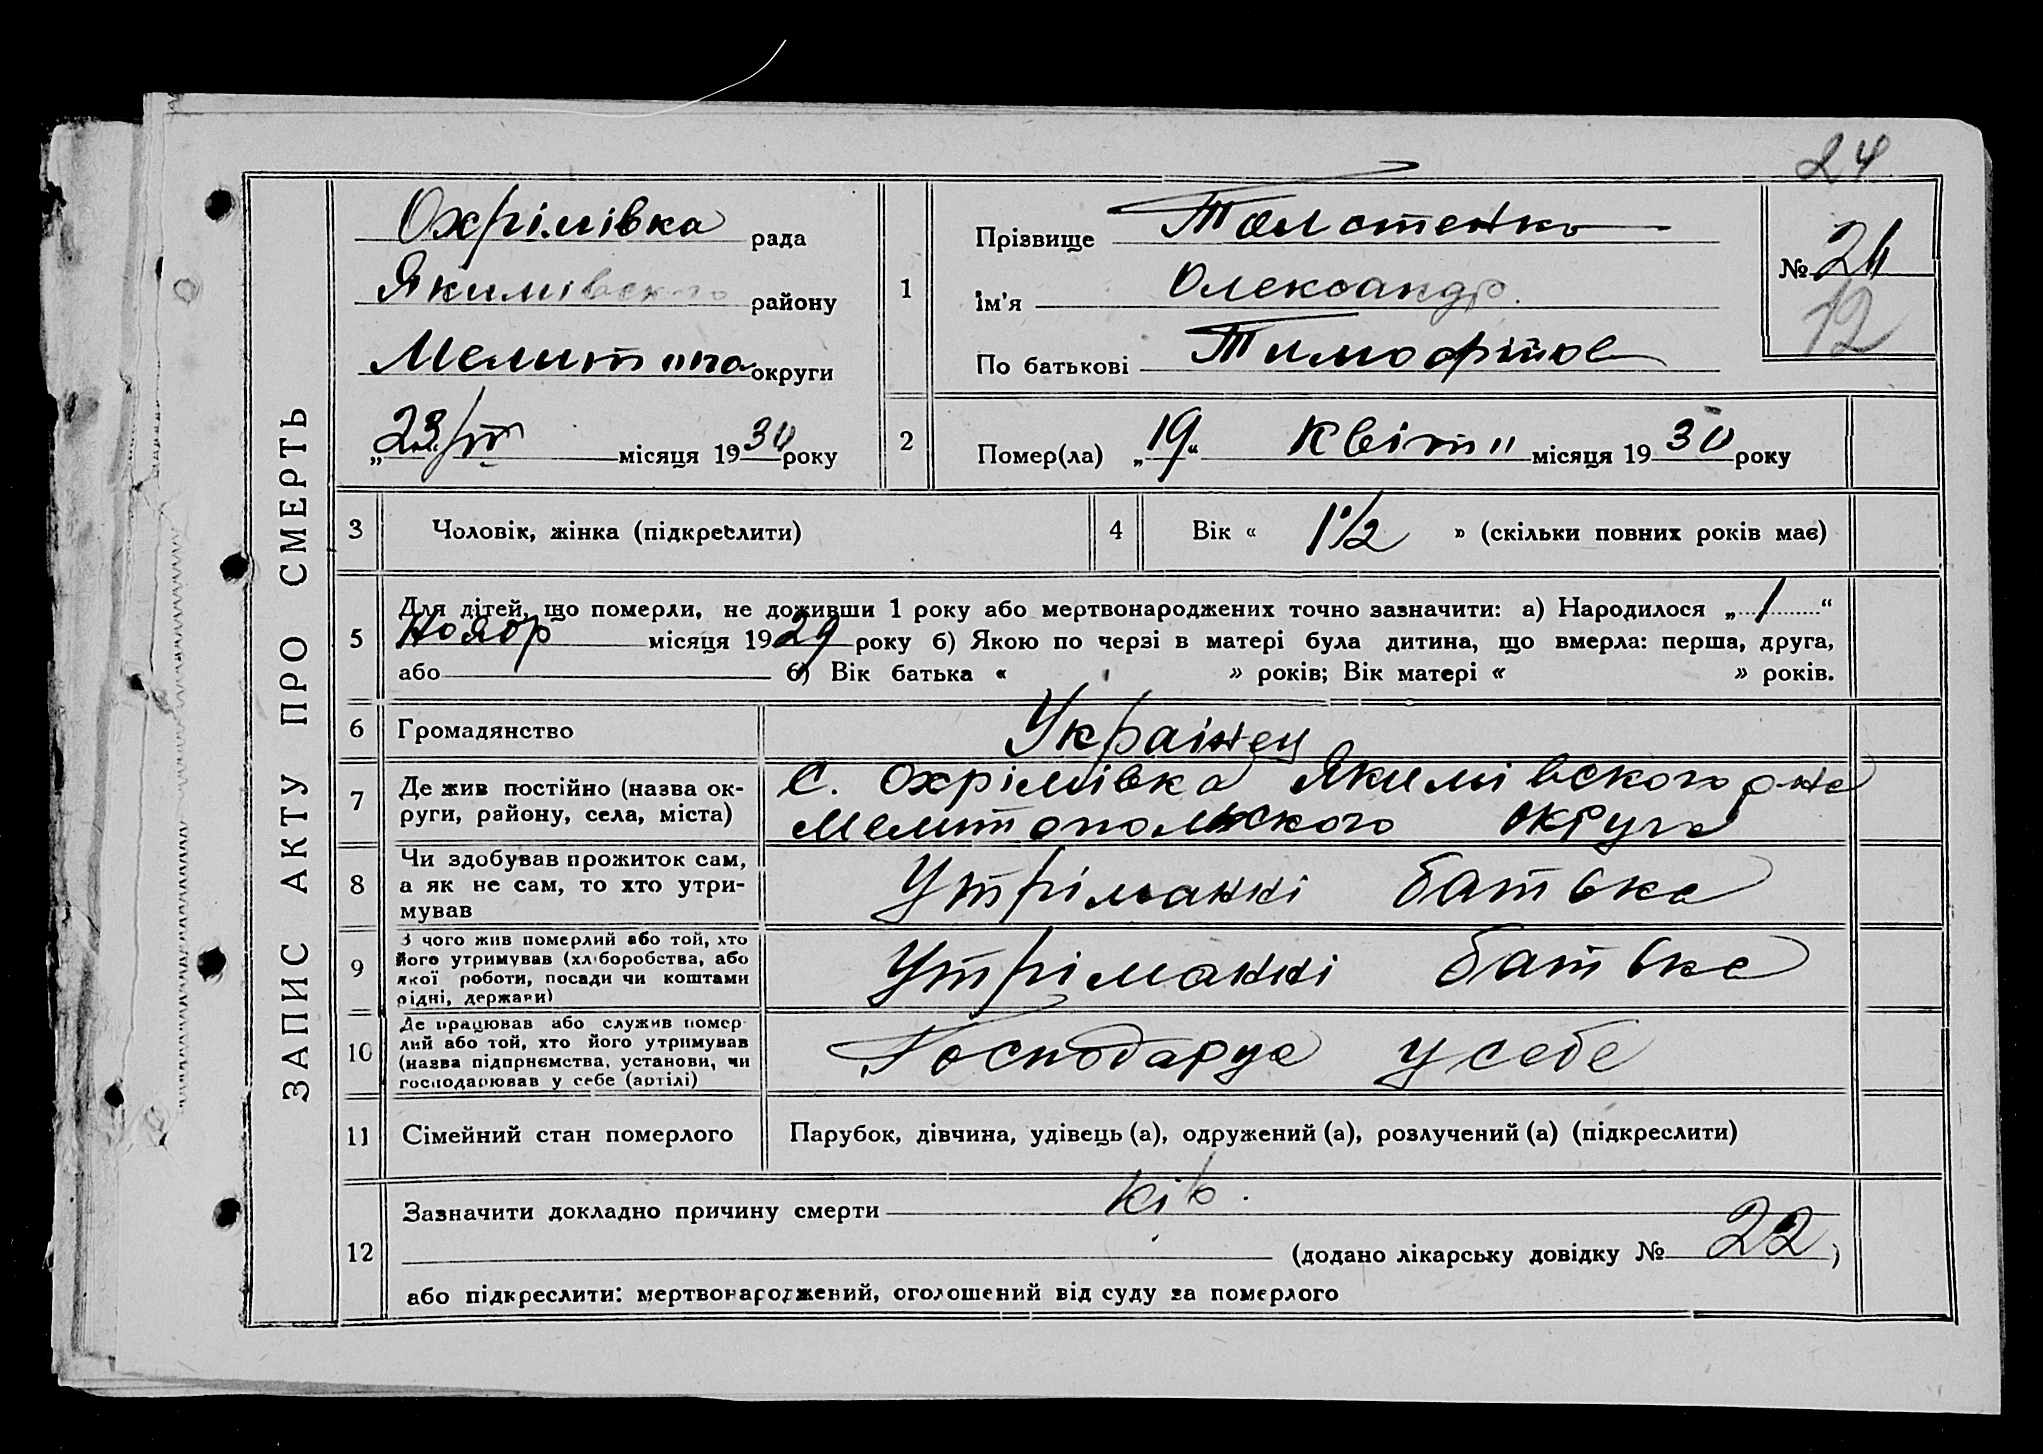 24
ЗАПИС АКТУ ПРО СМЕРТЬ
Охрімівка рада
Якимівского району
Мелитопо округи
„23/IV місяця 1930 року
1
Прізвище Толстенко
Ім'я Олександр.
По батькові Тимофійов
№ 24
12
2
Помер(ла) „19“ Квітн місяця 1930 року
3
Чоловік, жінка (підкреслити)
4
Вік « 1 1/2 » (скільки повних років має)
5
Для дітей, що померли, не доживши 1 року або мертвонароджених точно зазначити: а) Народилося „1“
Ноябр місяця 1929 року б) Якою по черзі в матері була дитина, що вмерла: перша, друга,
або б) Вік батька « » років; Вік матері « » років.
6
Громадянство
Украінец
7
Де жив постійно (назва ок-
руги, району, села, міста)
С. Охрімівка Якимівского р-на
Мелитопольского округа
8
Чи здобував прожиток сам,
а як не сам, то хто утри-
мував
Утріманні батька
9
З чого жив померлий або той, хто
його утримував (хліборобства, або
якої роботи, посади чи коштами
рідні, держави)
Утріманні батька
10
Де працював або служив помер-
лий або той, хто його утримував
(назва підприємства, установи, чи
господарював у себе (артілі)
Господарує у себе
11
Сімейний стан померлого
Парубок, дівчина, удівець (а), одружений (а), розлучений (а) (підкреслити)
12
Зазначити докладно причину смерти Кір.
(додано лікарську довідку № 22)
або підкреслити: мертвонароджений, оголошений від суду за померлого